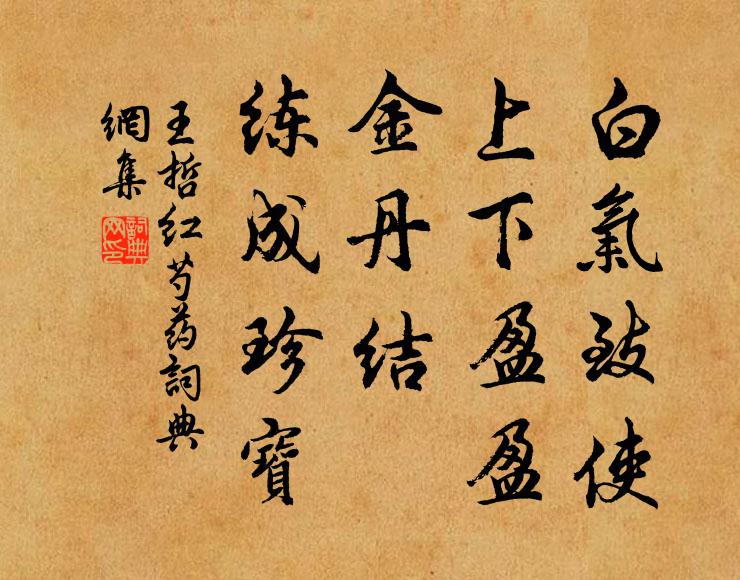 白氣致使
上下盈盈
金丹结
练成珍寶
王哲红芍药詞典
網集
詞典